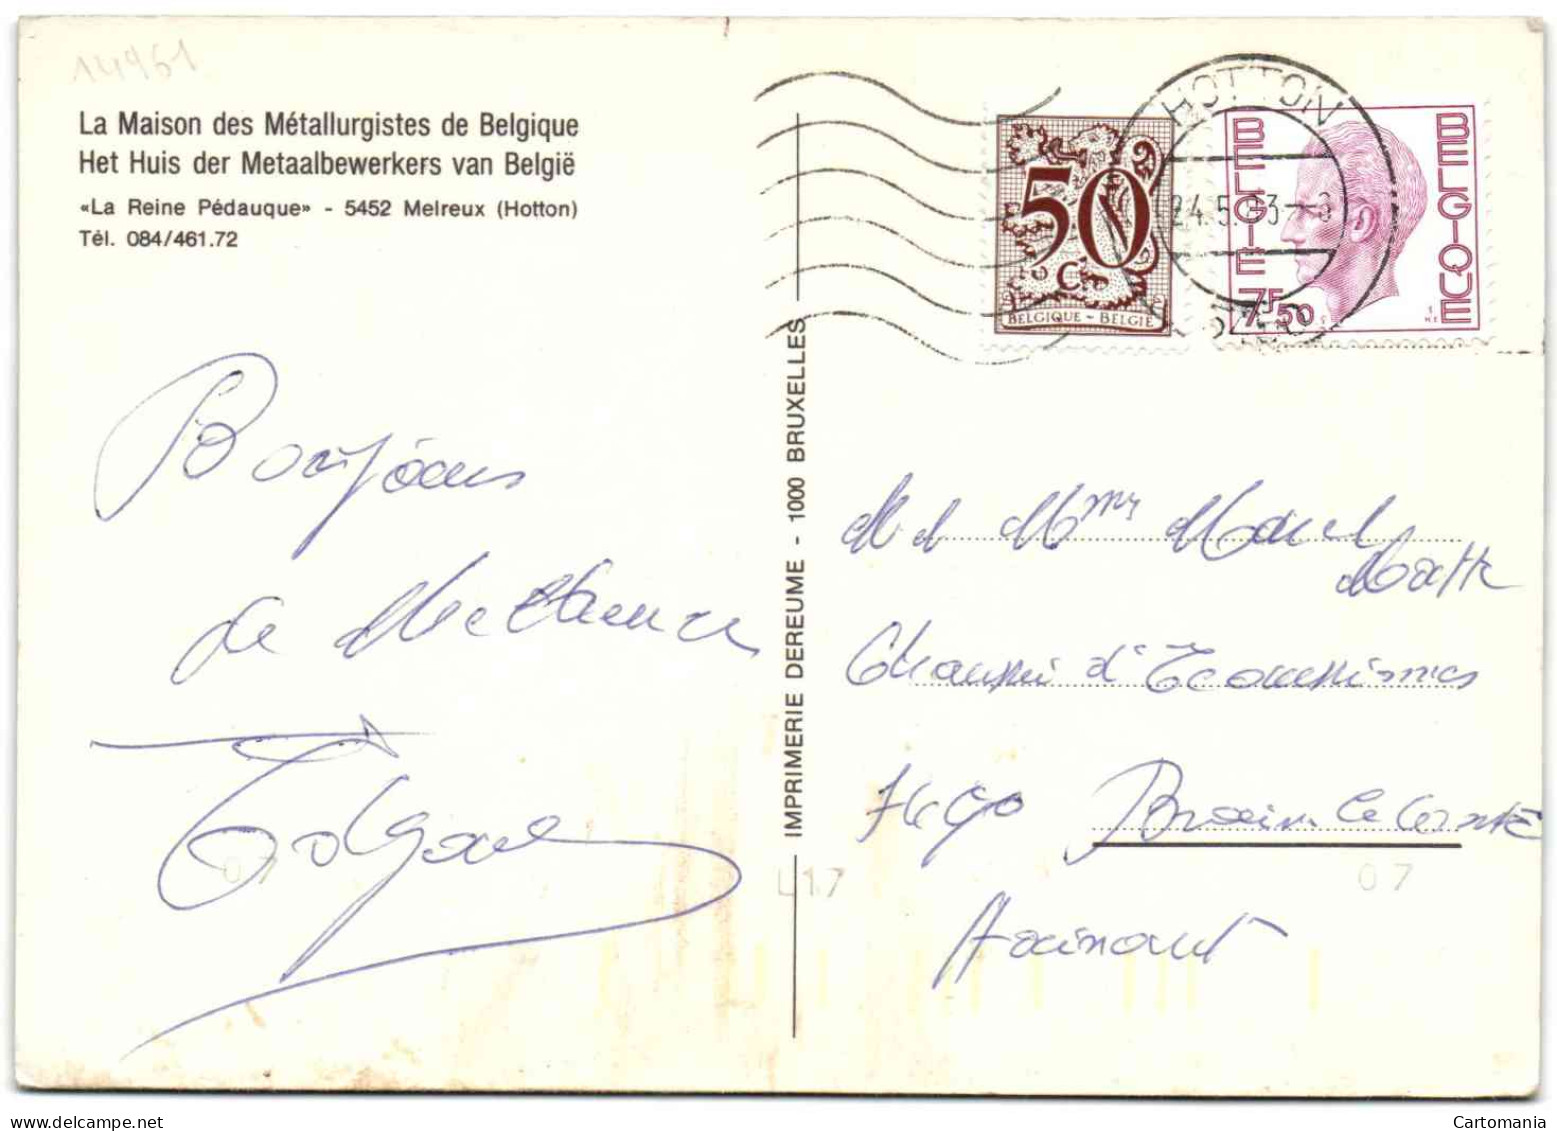 14961
La Maison des Métallurgistes de Belgique
Het Huis der Metaalbewerkers van België
«La Reine Pédauque» - 5452 Melreux (Hotton)
Tél. 084/461.72
HOTTON
24.5.
50
10 C
BELGIQUE - BELGIË
BELGIË
BELGIQUE
7F50
IMPRIMERIE DEREUME - 1000 BRUXELLES
Bonjour
de
Edgard
M et Mme Marcel
Chaussée d'Ecaussinnes
7490 Braine le Comte
Hainaut
07
L17
07
Cartomania
www.delcampe.net